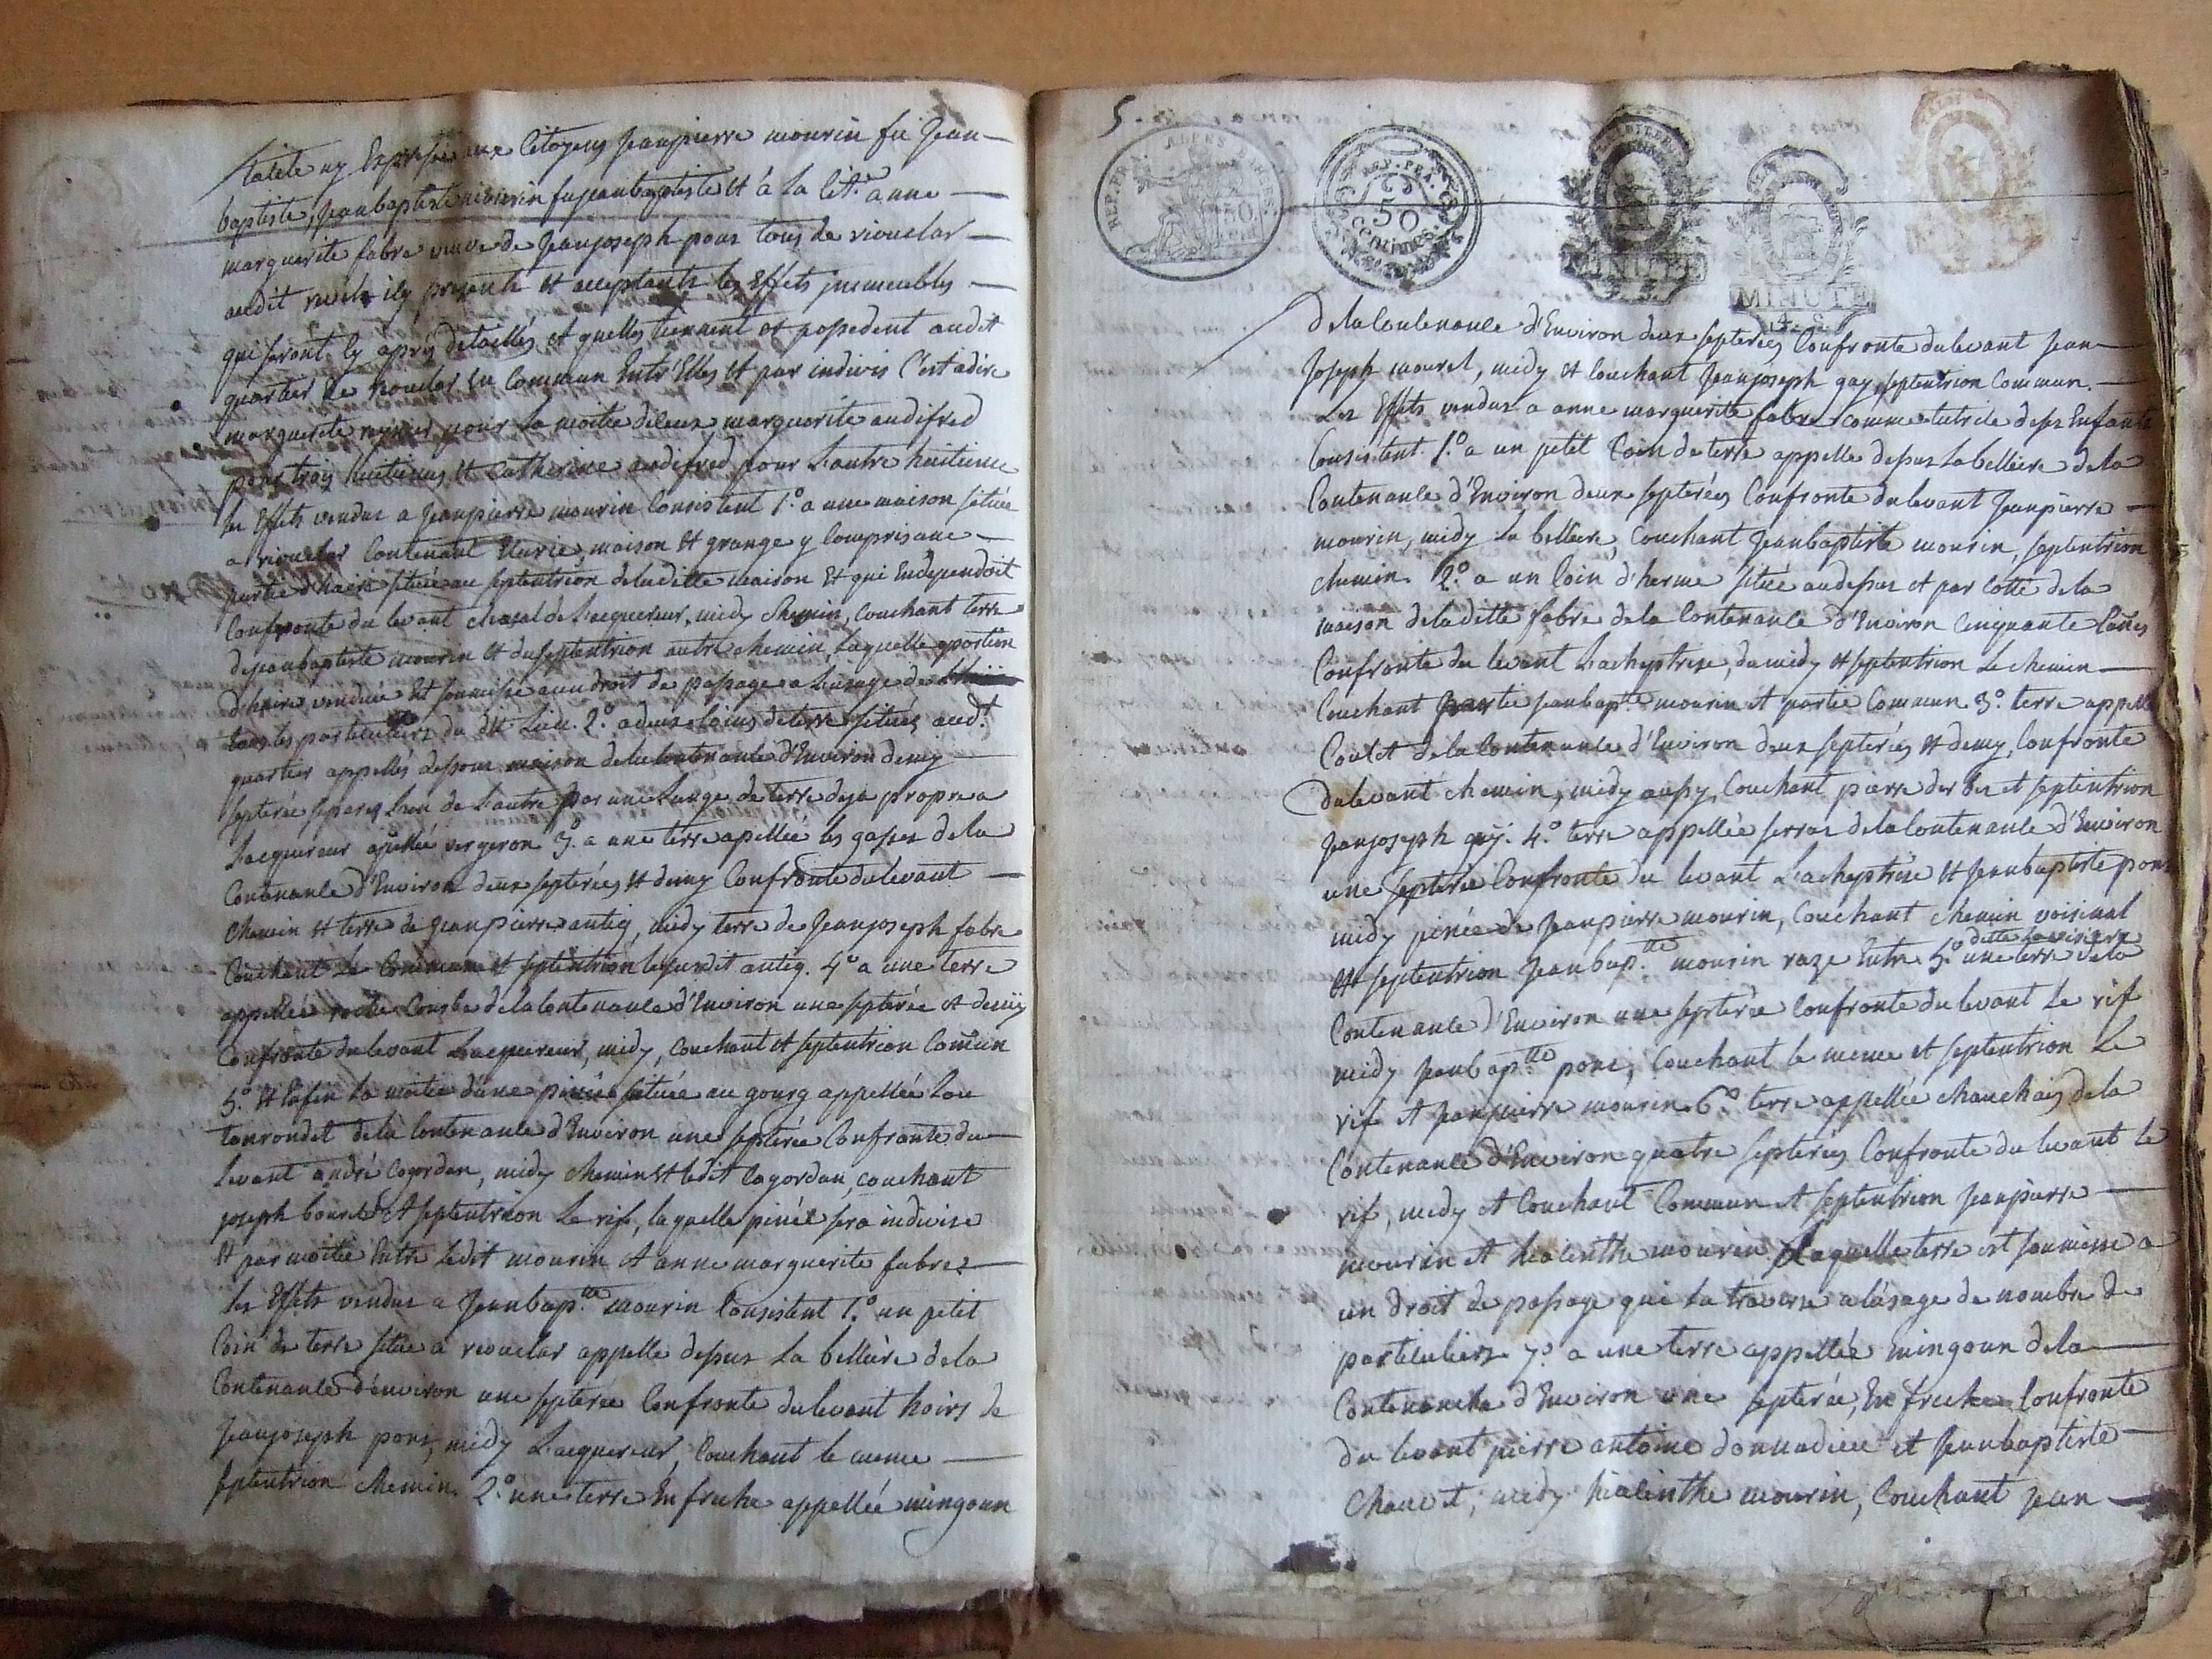 citoyens jeanpierre mourin fu jean
baptiste, jeanbaptiste mourin fu jeanbaptiste et à la cit.e anne
marguerite fabre veuve de jeanjoseph pons tous de riouclar
audit icy presents et acceptants les Effets immeubles
qui seront cy après detaillés et quelles tiennent et possedent audit
quartier de rouclar En Commun Entr'Elles et par indivis C'est adire
marguerite pour la moitié marguerite audifred
pour trois huitiemes et Catherine audifred pour l'autre huitieme
les Effets vendus a jeanpierre mourin Consistent 1.° a une maison située
a riouclar Contenant Ecurie, maison et grange y Compris une
partie d'haire située au septentrion deladitte maison Et qui Endependoit
Confronte du levant chasal de l'acquereur, midy chemin, Couchant terre
dejeanbaptiste mourin et du septentrion autre chemin, laquelle portion
d'haire vendue Est soumise a un droit de passage a l'usage de
tous les particuliers du dit Lieu. 2.° a deux Coins deterre situés aud.t
quartier appellés dessous maison dela Contenance d'Environ demy
septerée separés l'un de l'autre par une de terre deja propre a
l'acquereur apellée vergeron 3.° a une terre apellée les gasses dela
Contenance d'Environ deux septerées et demy Confronte dulevant
Chemin et terre de jeanpierre antiq, midy terre de Jeanjoseph fabre
Couchant Le Commun et septentrion lesusdit antiq. 4.° a une terre
appellée roche Courbe dela Contenance d'Environ une septerée et demy
Confronte dulevant L'acquereur, midy, Couchant et septentrion Comun
5.° Et Enfin la moitié d'une pinée située au gourg appellée Lou
tourondet dela Contenance d'Environ une septerée Confronte du
Levant andré Cogordan, midy chemin et ledit Cogordan, couchant
joseph et septentrion Le rif, laquelle pinée sera indivise
Et par moitié Entre Ledit mourin et anne marguerite fabre
Les Effets vendus a Jeanbap.tte mourin Consistent 1.° un petit
Coin de terre situé a riouclar appellé dessus la bellière dela
Contenance d'environ une septerée Confronte dulevant hoirs de
jeanjoseph pons, midy L'acquereur, Couchant le meme
septentrion chemin. 2.° une terre En friche appellée mingoun
5.
REP. FRA. ALPES
50
REP. FRA.
50
Centimes
MINUTE
MINUTE
dela Contenance d'Environ deux septerées Confronte dulevant jean
Joseph mourel, midy et Couchant Jeanjoseph gay, septentrion Commun.
Les Effets vendus a anne marguerite fabre comme tutrice deses Enfants
Consistent 1.° a un petit Coin de terre appellé dessus la bellieire dela
Contenance d'Environ deux septerées Confronte dulevant jeanpierre
mourin, midy la bellieire, Couchant jeanbaptiste mourin, septentrion
chemin. 2.° a un Coin d'herme situé audessus et par Cotté dela
maison deladitte fabre dela Contenance d'Environ Cinquante Canes
Confronte du levant L'acheptrise, du midy et septentrion Le chemin
Couchant partie jeanbap.tte mourin et partie Commun. 3.° terre appellée
Coulet dela Contenance d'Environ deux septerées et demy, Confronte
dulevant chemin, midy aussy, Couchant pierre et septentrion
jeanjoseph gay. 4.° terre appellée serras dela Contenance d'Environ
une septerée Confronte du levant L'acheptrise et jeanbaptiste pons
midy pinée de jeanpierre mourin, Couchant chemin voisinal
Et septentrion Jeanbap.tte mourin raze Entre. 5.° une terre ditte dela
Contenance d'Environ une septerée Confronte dulevant Le rif
midy jeanbap.tte pons, Couchant le meme et septentrion Le
rif et jeanpierre mourin. 6.° terre appellée chauchais dela
Contenance d'Environ quatre septerées Confronte du levant le
rif, midy et Couchant Commun et septentrion jeanpierre
mourin et hialinthe mourin, laquelle terre est soumise a
un droit de passage qui la traverse a l'usage de nombre de
particuliers. 7.° a une terre appellée mingoun dela
Contenance d'Environ une septerée, En friche Confronte
du levant pierre antoine donnadieu et jeanbaptiste
midy hialinthe mourin, Couchant jean